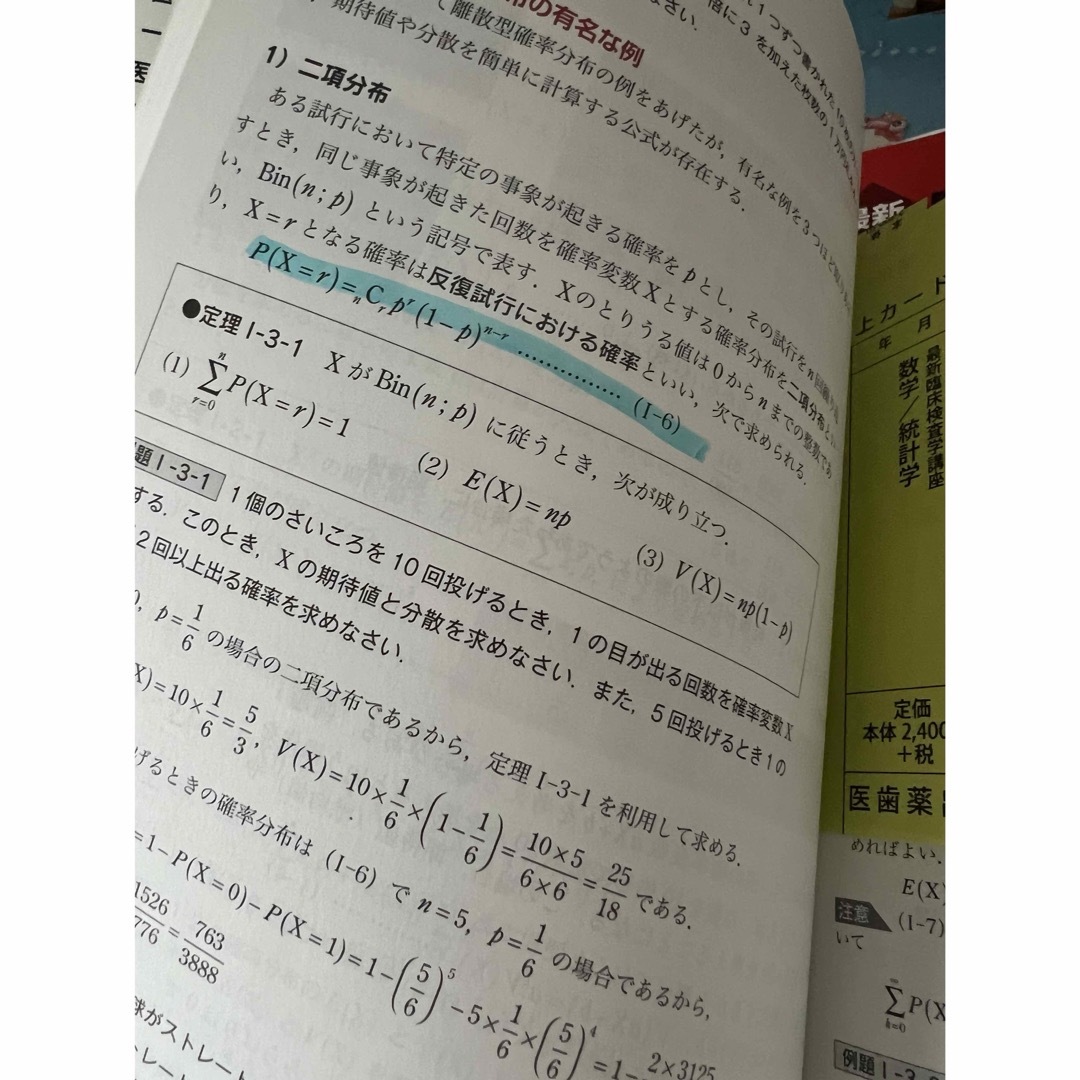 の有名な例
て離散型確率分布の例をあげたが，有名な例を3つほど
期待値や分散を簡単に計算する公式が存在する．
1）二項分布
ある試行において特定の事象が起きる確率をpとし，その試行をn回
すとき，同じ事象が起きた回数を確率変数Xとする確率分布を二項分布と
い，Bin(n;p)という記号で表す．Xのとりうる値は0からnまでの整数であ
り，X=rとなる確率は反復試行における確率といい，次で求められる．
P(X=r)=ₙCᵣpʳ(1−p)ⁿ⁻ʳ ……………(I-6)
●定理I-3-1 XがBin(n;p)に従うとき，次が成り立つ．
(1) ∑_{r=0}^{n} P(X=r)=1 (2) E(X)=np (3) V(X)=np(1−p)
題I-3-1 1個のさいころを10回投げるとき，1の目が出る回数を確率変数X
する．このとき，Xの期待値と分散を求めなさい．また，5回投げるとき1の
2回以上出る確率を求めなさい．
p=1/6の場合の二項分布であるから，定理I-3-1を利用して求める．
X)=10×1/6=5/3, V(X)=10×1/6×(1−1/6)=10×5/6×6=25/18である．
げるときの確率分布は(I-6)でn=5, p=1/6の場合であるから，
=1−P(X=0)−P(X=1)=1−(5/6)⁵−5×1/6×(5/6)⁴=1−2×3125
1526/776=763/3888
球がストレー
トレー
1つずつ書かれた10
倍に3を加えた枚数の1万円
なさい．
医
最新
上カード
年 月
最新臨床検査学講座
数学／統計学
定価
本体2,400
＋税
医歯薬出
めればよい．
E(X)
注意 (I-7)
いて
∑_{k=0}^{∞} P(X
例題I-3-